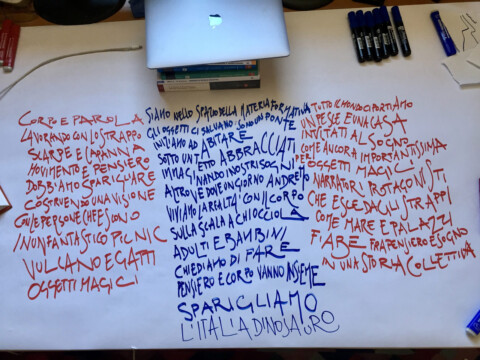 CORPO E PAROLA
LAVORANDO CON LO STRAPPO
SCARPE E CAPANNA
MOVIMENTO E PENSIERO
DOBBIAMO SPARIGLIARE
COSTRUENDO UNA VISIONE
CON LE PERSONE CHE CI SONO
IN UN FANTASTICO PIC NIC
VULCANO E GATTI
OGGETTI MAGICI
SIAMO NELLO SPAZIO DELLA MATERIA FORMATIVA
GLI OGGETTI CI SALVANO SONO UN PONTE
INIZIAMO AD ABITARE
SOTTO UN TETTO ABBRACCIATI
IMMAGINANDO I NOSTRI SOGNI
ALTROVE DOVE UN GIORNO ANDREMO
VIVIAMO LA REALTÀ CON IL CORPO
SULLA SCALA A CHIOCCIOLA
ADULTI E BAMBINI
CHIEDIAMO DI FARE
PENSIERO E CORPO VANNO INSIEME
SPARIGLIAMO
L'ITALIA DINOSAURO
TUTTO IL MONDO CI PORTIAMO
UN PESCE E UNA CASA
INVITATI AL SOGNO
COME ANCORA IMPORTANTISSIMA
OGGETTI MAGICI
NARRATORI PROTAGONISTI
CHE ESCE DAGLI STRAPPI
COME MARE E PALAZZI
FIABE FRA PENSIERO E SOGNO
IN UNA STORIA COLLETTIVA